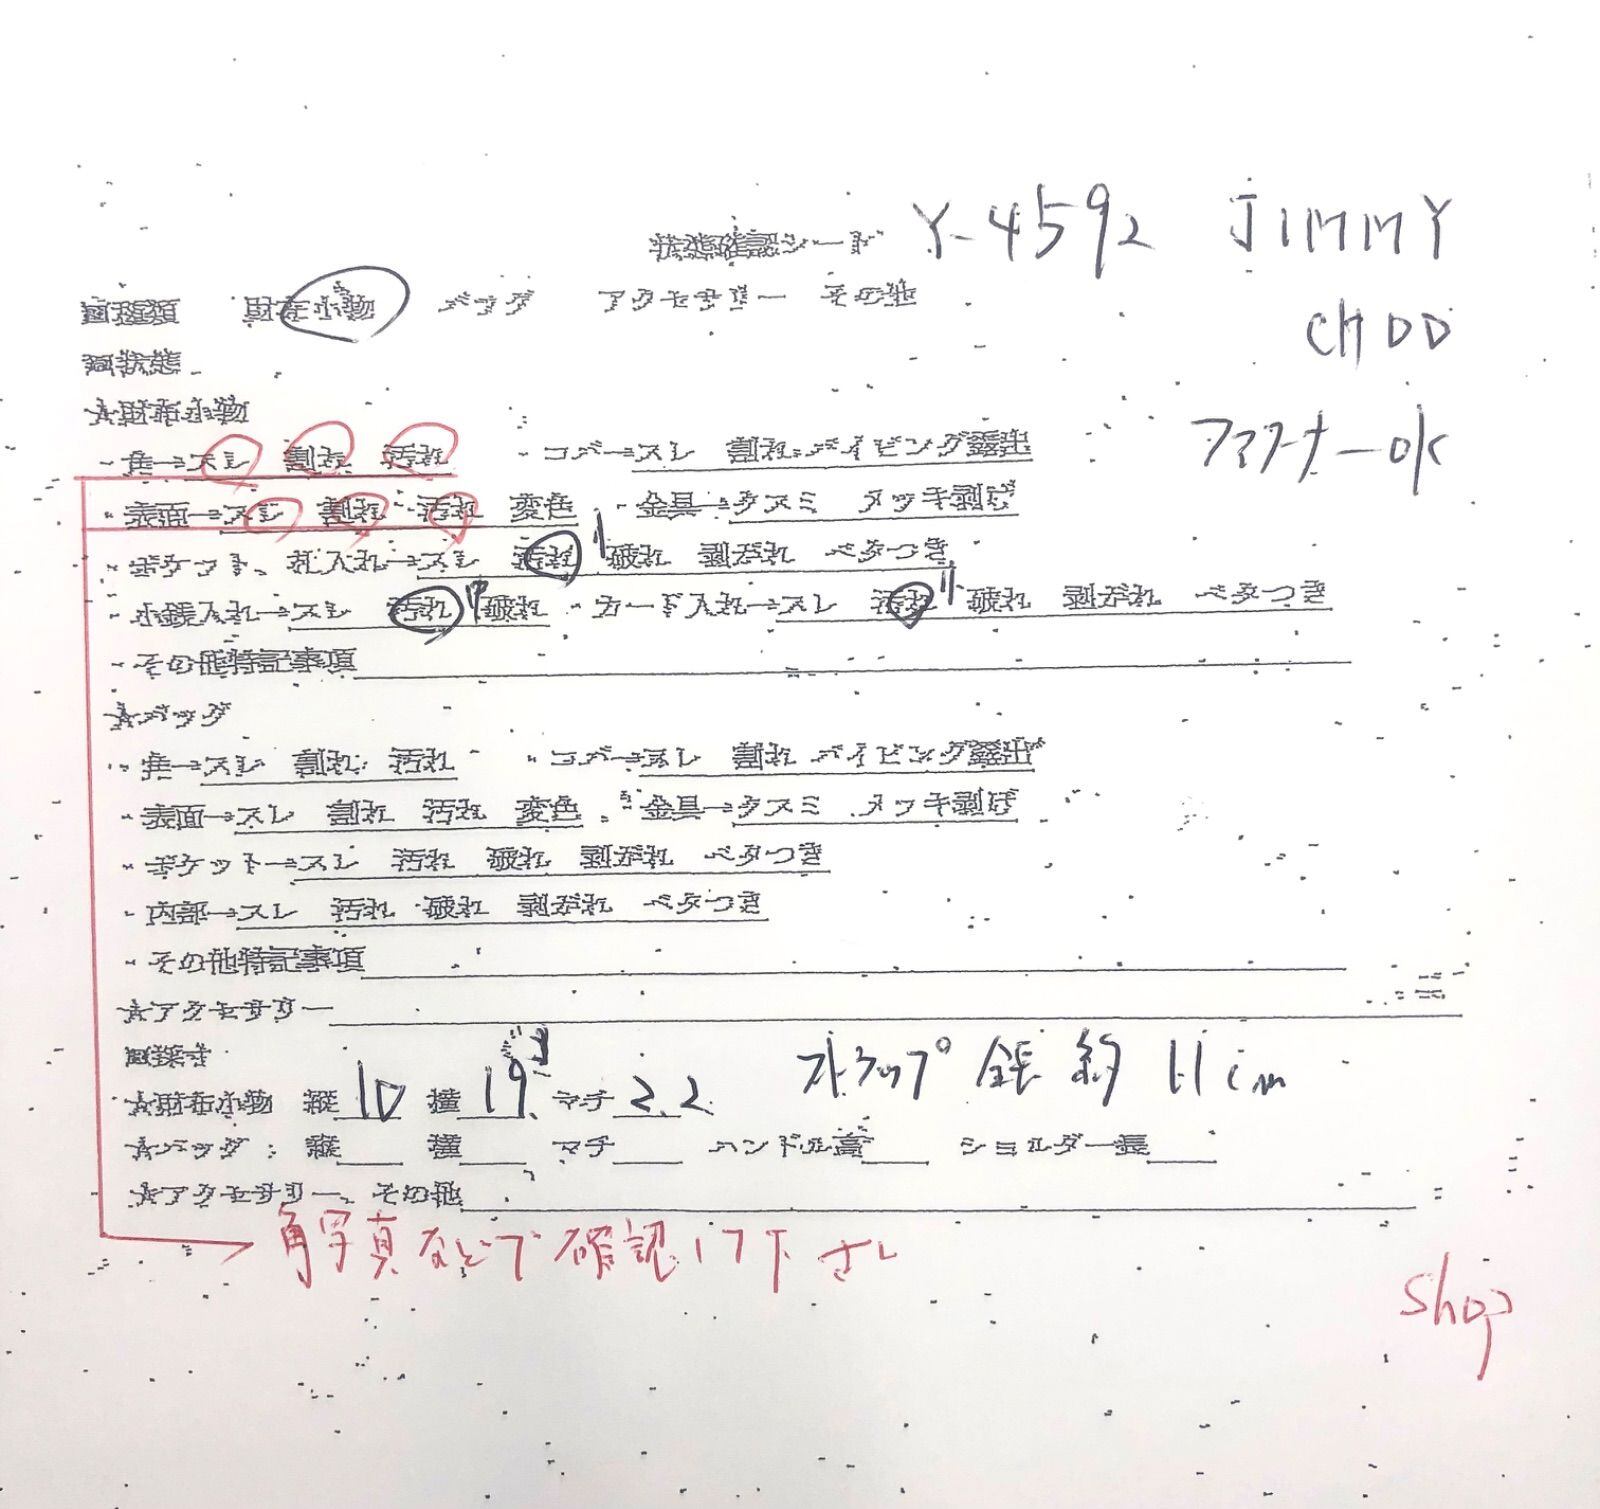 状態確認シート Y-4592 JIMMY
CHOO
□種類 財布小物 バッグ アクセサリー その他
□状態
☆財布小物
ファスナーOK
・角→スレ 割れ 汚れ ・コバ→スレ 割れ パイピング露出
・表面→スレ 割れ 汚れ 変色 ・金具→クスミ メッキ剥げ
・ポケット、札入れ→スレ 汚れ 小 破れ 剥がれ ベタつき
・小銭入れ→スレ 汚れ 中 破れ ・カード入れ→スレ 汚れ 小 破れ 剥がれ ベタつき
・その他特記事項
☆バッグ
・角→スレ 割れ 汚れ ・コバ→スレ 割れ パイピング露出
・表面→スレ 割れ 汚れ 変色 ・金具→クスミ メッキ剥げ
・ポケット→スレ 汚れ 破れ 剥がれ ベタつき
・内部→スレ 汚れ 破れ 剥がれ ベタつき
・その他特記事項
☆アクセサリー
□採寸
☆財布小物 縦 10 横 19 マチ 2.2 ストラップ 全長 約 11cm
☆バッグ:縦 横 マチ ハンドル高 ショルダー長
☆アクセサリー、その他
角写真などで確認して下さい
shop